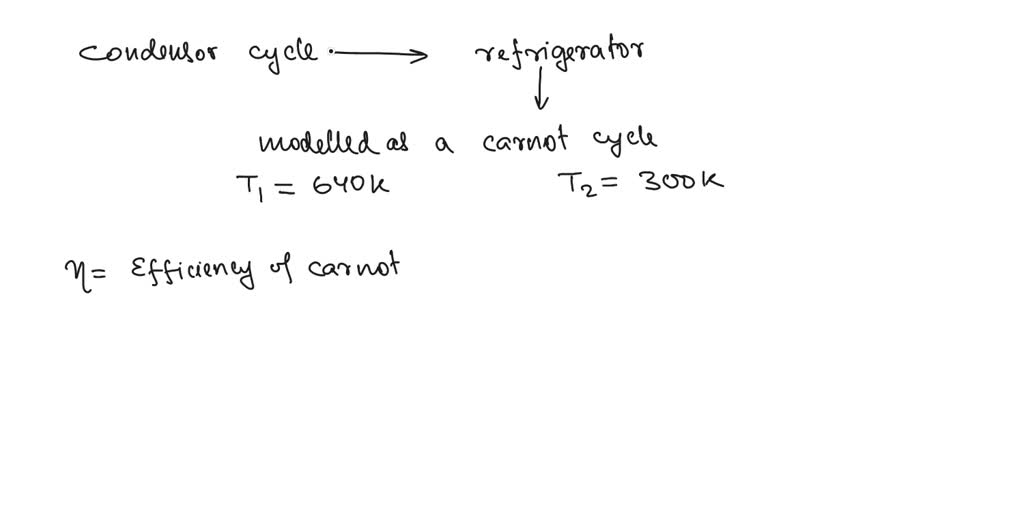 condensor cycle → refrigerator
↓
modelled as a carnot cycle
T₁ = 640K T₂ = 300K
η = Efficiency of carnot